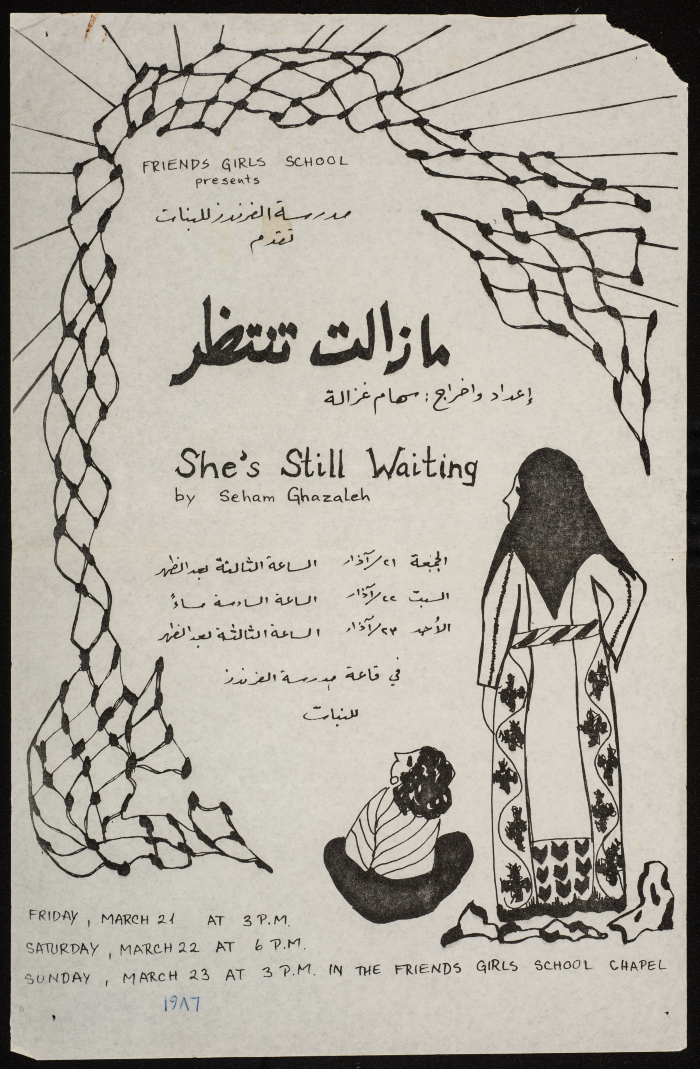 FRIENDS GIRLS SCHOOL
presents
مدرسة الفرندز للبنات
تقدم
ما زالت تنتظر
إعداد واخراج : سهام غزالة
She's Still Waiting
by Seham Ghazaleh
الجمعة ٢١/آذار الساعة الثالثة بعد الظهر
السبت ٢٢/آذار الساعة السادسة مساءً
الأحد ٢٣/آذار الساعة الثالثة بعد الظهر
في قاعة مدرسة الفرندز
للبنات
FRIDAY , MARCH 21 AT 3 P.M.
SATURDAY , MARCH 22 AT 6 P.M.
SUNDAY , MARCH 23 AT 3 P.M. IN THE FRIENDS GIRLS SCHOOL CHAPEL
١٩٨٧